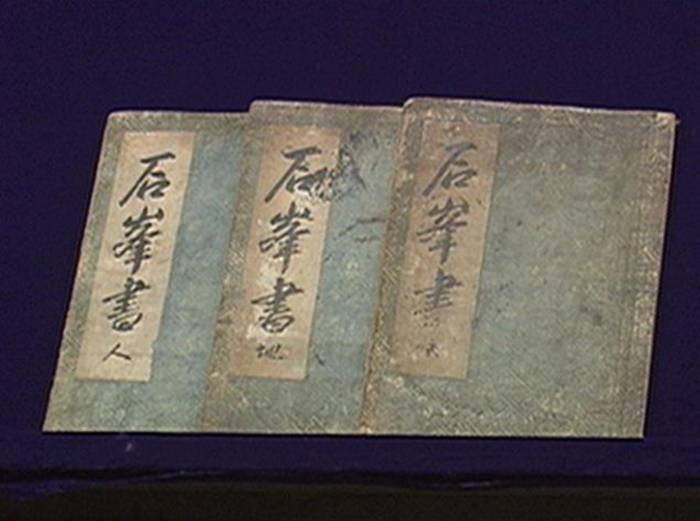 石峯書
天
石峯書
地
石峯書
人